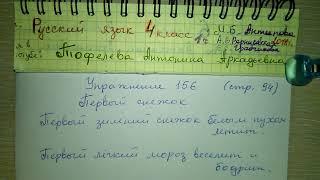 Русский язык 4 класс
Тофелева Антонина Аркадьевна
Упражнение 156 (стр. 94)
Первый снежок
Первый зимний снежок белым пухом
летит.
Первый лёгкий мороз веселит и
бодрит.